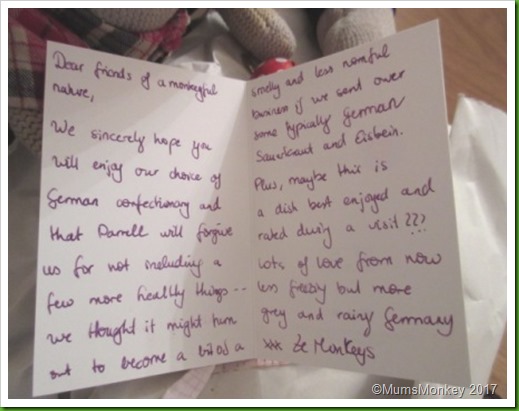 Dear friends of a monkeyful
nature,
We sincerely hope you
will enjoy our choice of
German confectionary and
that Darrell will forgive
us for not including a
few more healthy things --
we thought it might turn
out to become a bit of a
smelly and less
business if we sent over
some typically German
Sauerkraut and Eisbein.
Plus, maybe this is
a dish best enjoyed and
rated during a visit???
Lots of love from now
less freeziy but more
grey and rainy Germany
xxx Ze Monkeys
©MumsMonkey 2017